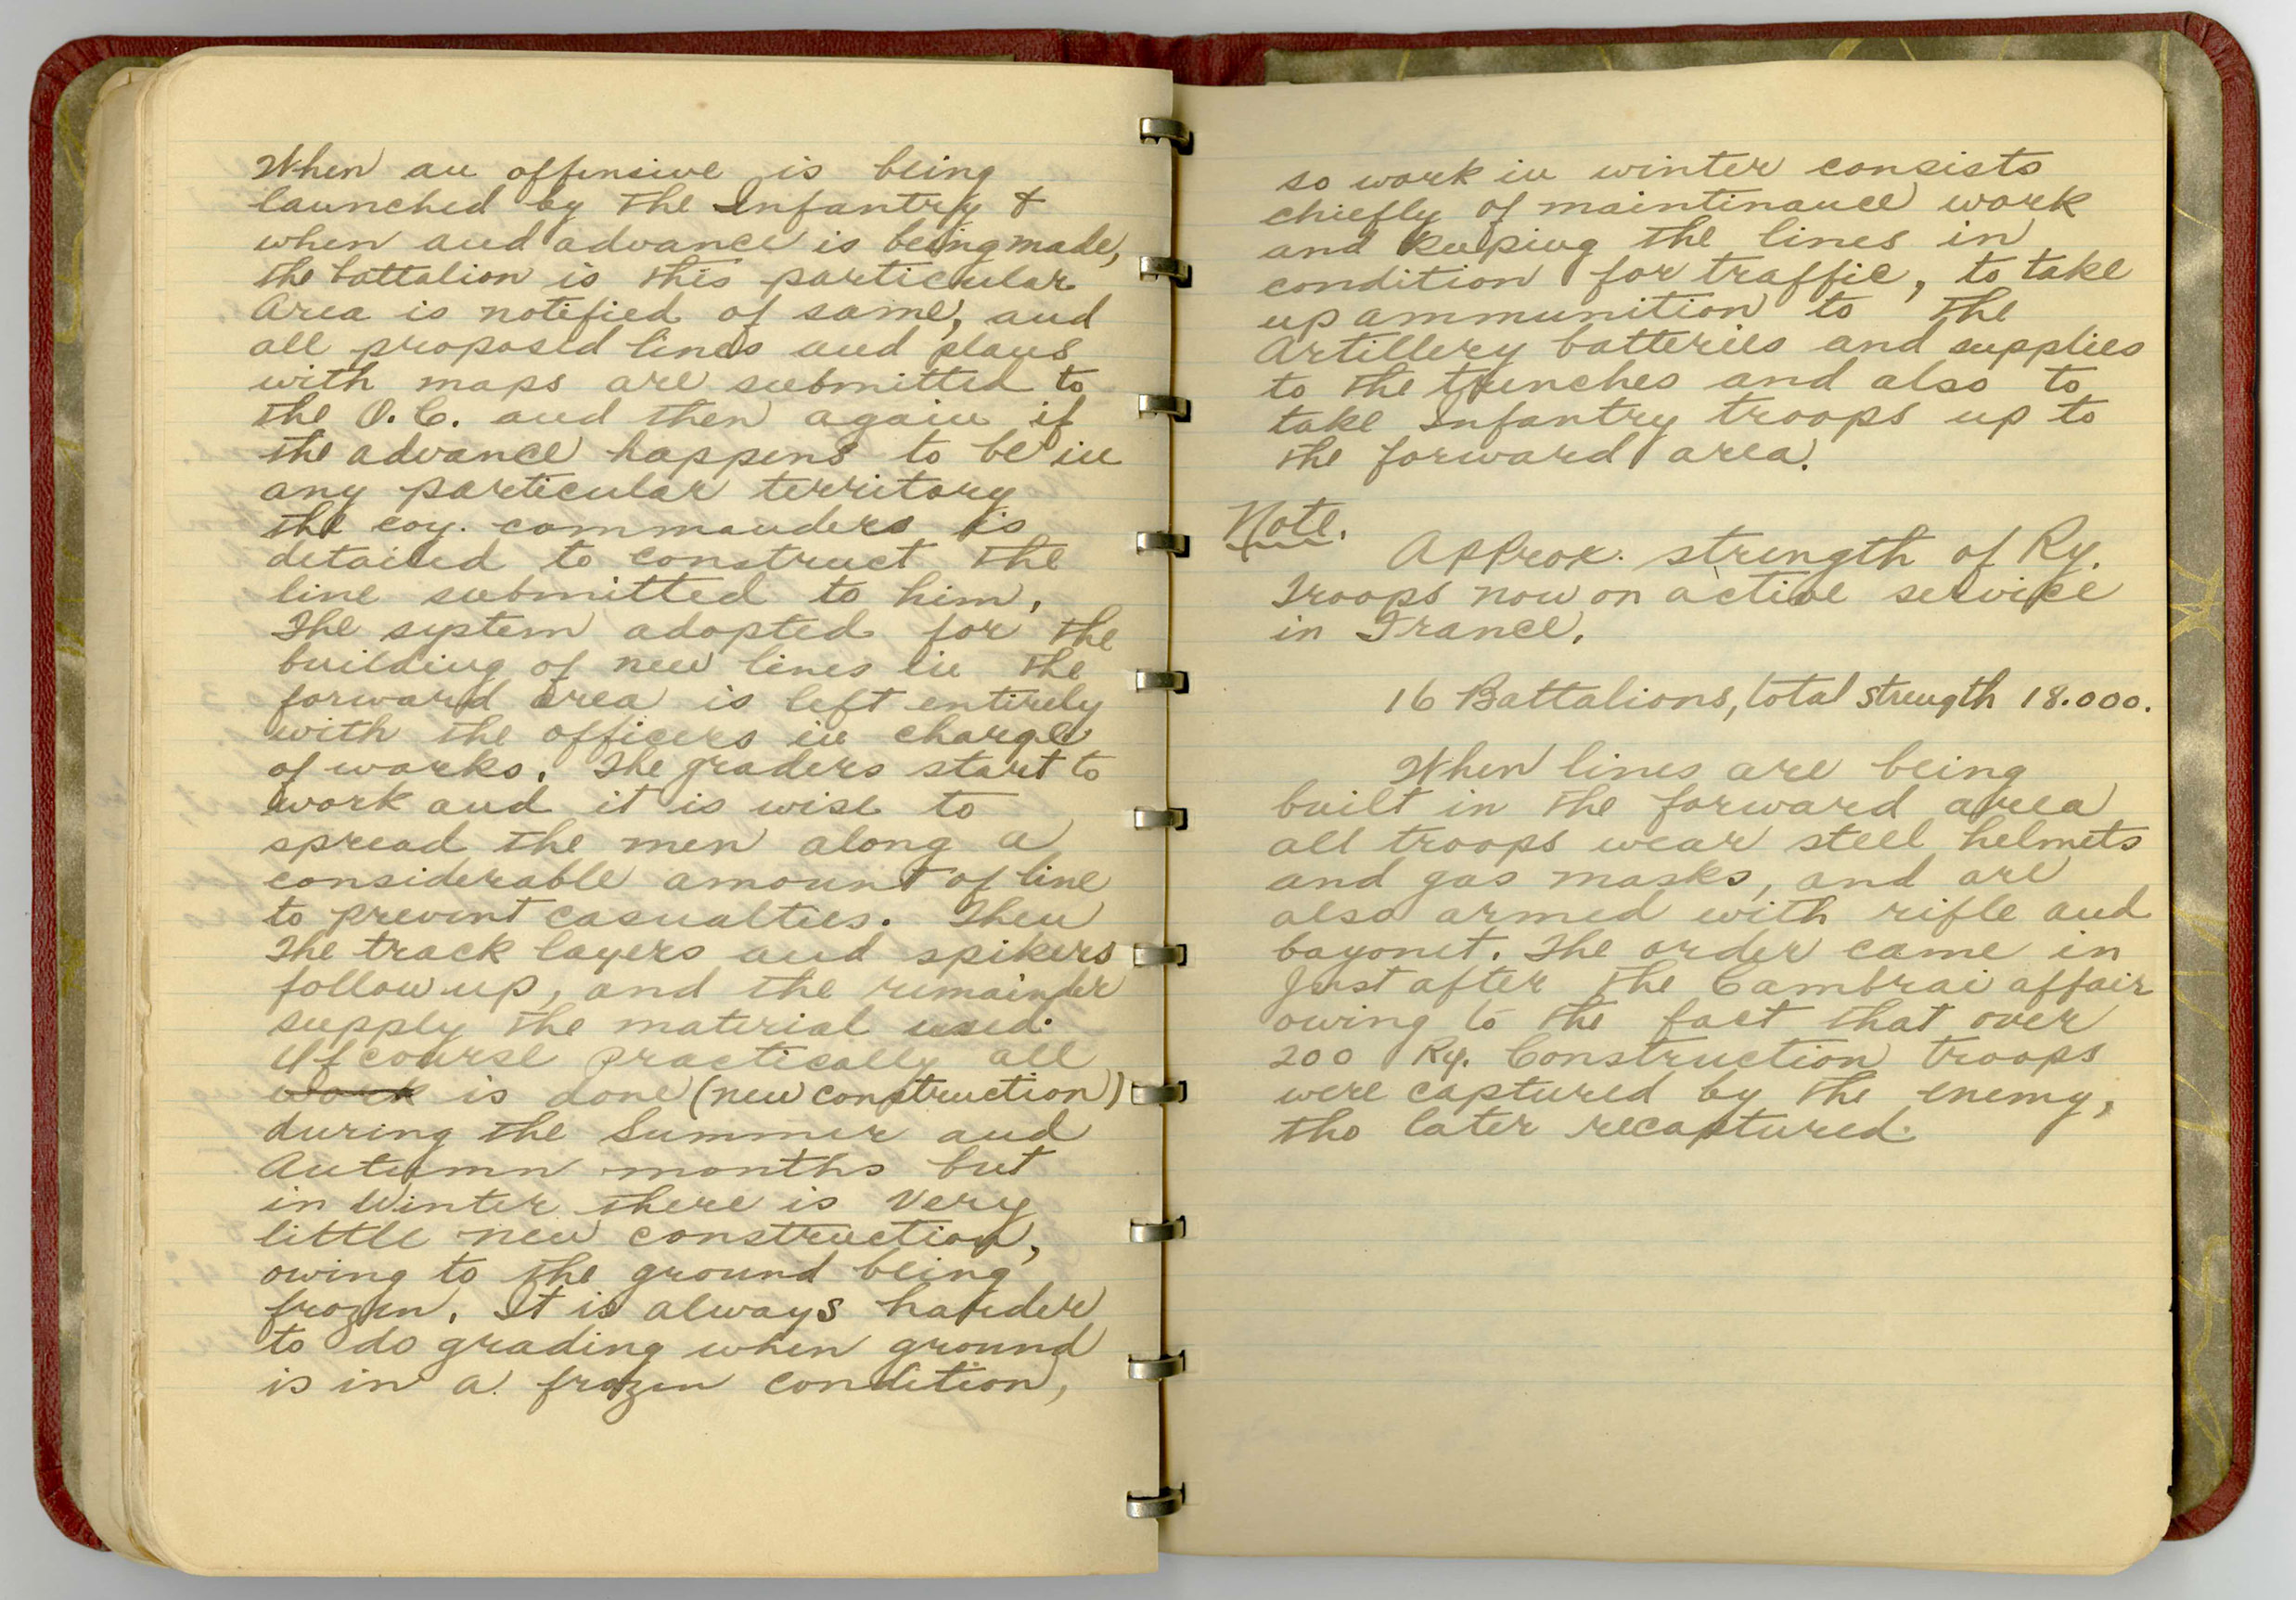 When an offensive is being
launched by the Infantry &
when and advance is being made,
the battalion is this particular
Area is notified of same, and
all proposed lines and plans
with maps are submitted to
the O.C. and then again if
the advance happens to be in
any particular territory
the coy. commanders is
detailed to construct the
line submitted to him.
The system adopted for the
building of new lines in the
forward area is left entirely
with the officers in charge
of works. The graders start to
work and it is wise to
spread the men along a
considerable amount of line
to prevent casualties. Then
The track layers and spikers
follow up, and the remainder
supply the material used.
Of course practically all
work is done (new construction)
during the Summer and
Autumn months but
in Winter there is very
little new construction,
owing to the ground being
frozen. It is always harder
to do grading when ground
is in a frozen condition,
so work in winter consists
chiefly of maintinance work
and keeping the lines in
condition for traffic, to take
up ammunition to the
Artillery batteries and supplies
to the trenches and also to
take Infantry troops up to
the forward area.
Note.
Approx. strength of Ry.
Troops now on active service
in France.
16 Battalions, total strength 18.000.
When lines are being
built in the forward area
all troops wear steel helmets
and gas masks, and are
also armed with rifle and
bayonet. The order came in
just after the Cambrai affair
owing to the fact that over
200 Ry. Construction troops
were captured by the enemy,
tho later recaptured.